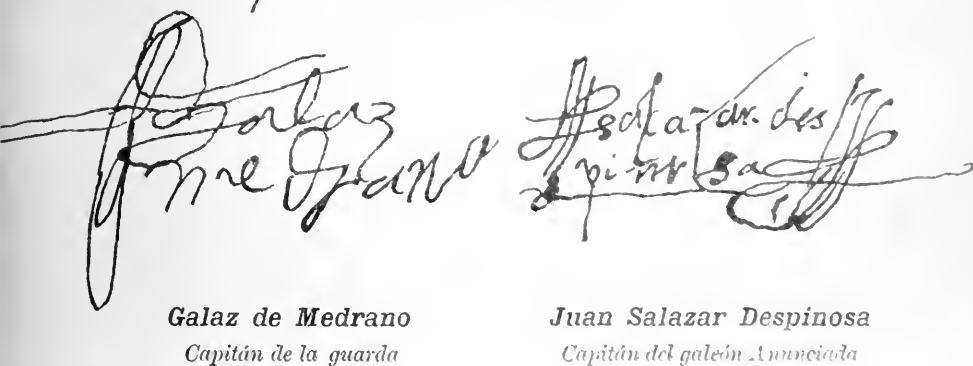 Galaz
medrano
salazar des
pinosa
Galaz de Medrano
Capitán de la guarda
Juan Salazar Despinosa
Capitán del galeón Anunciada